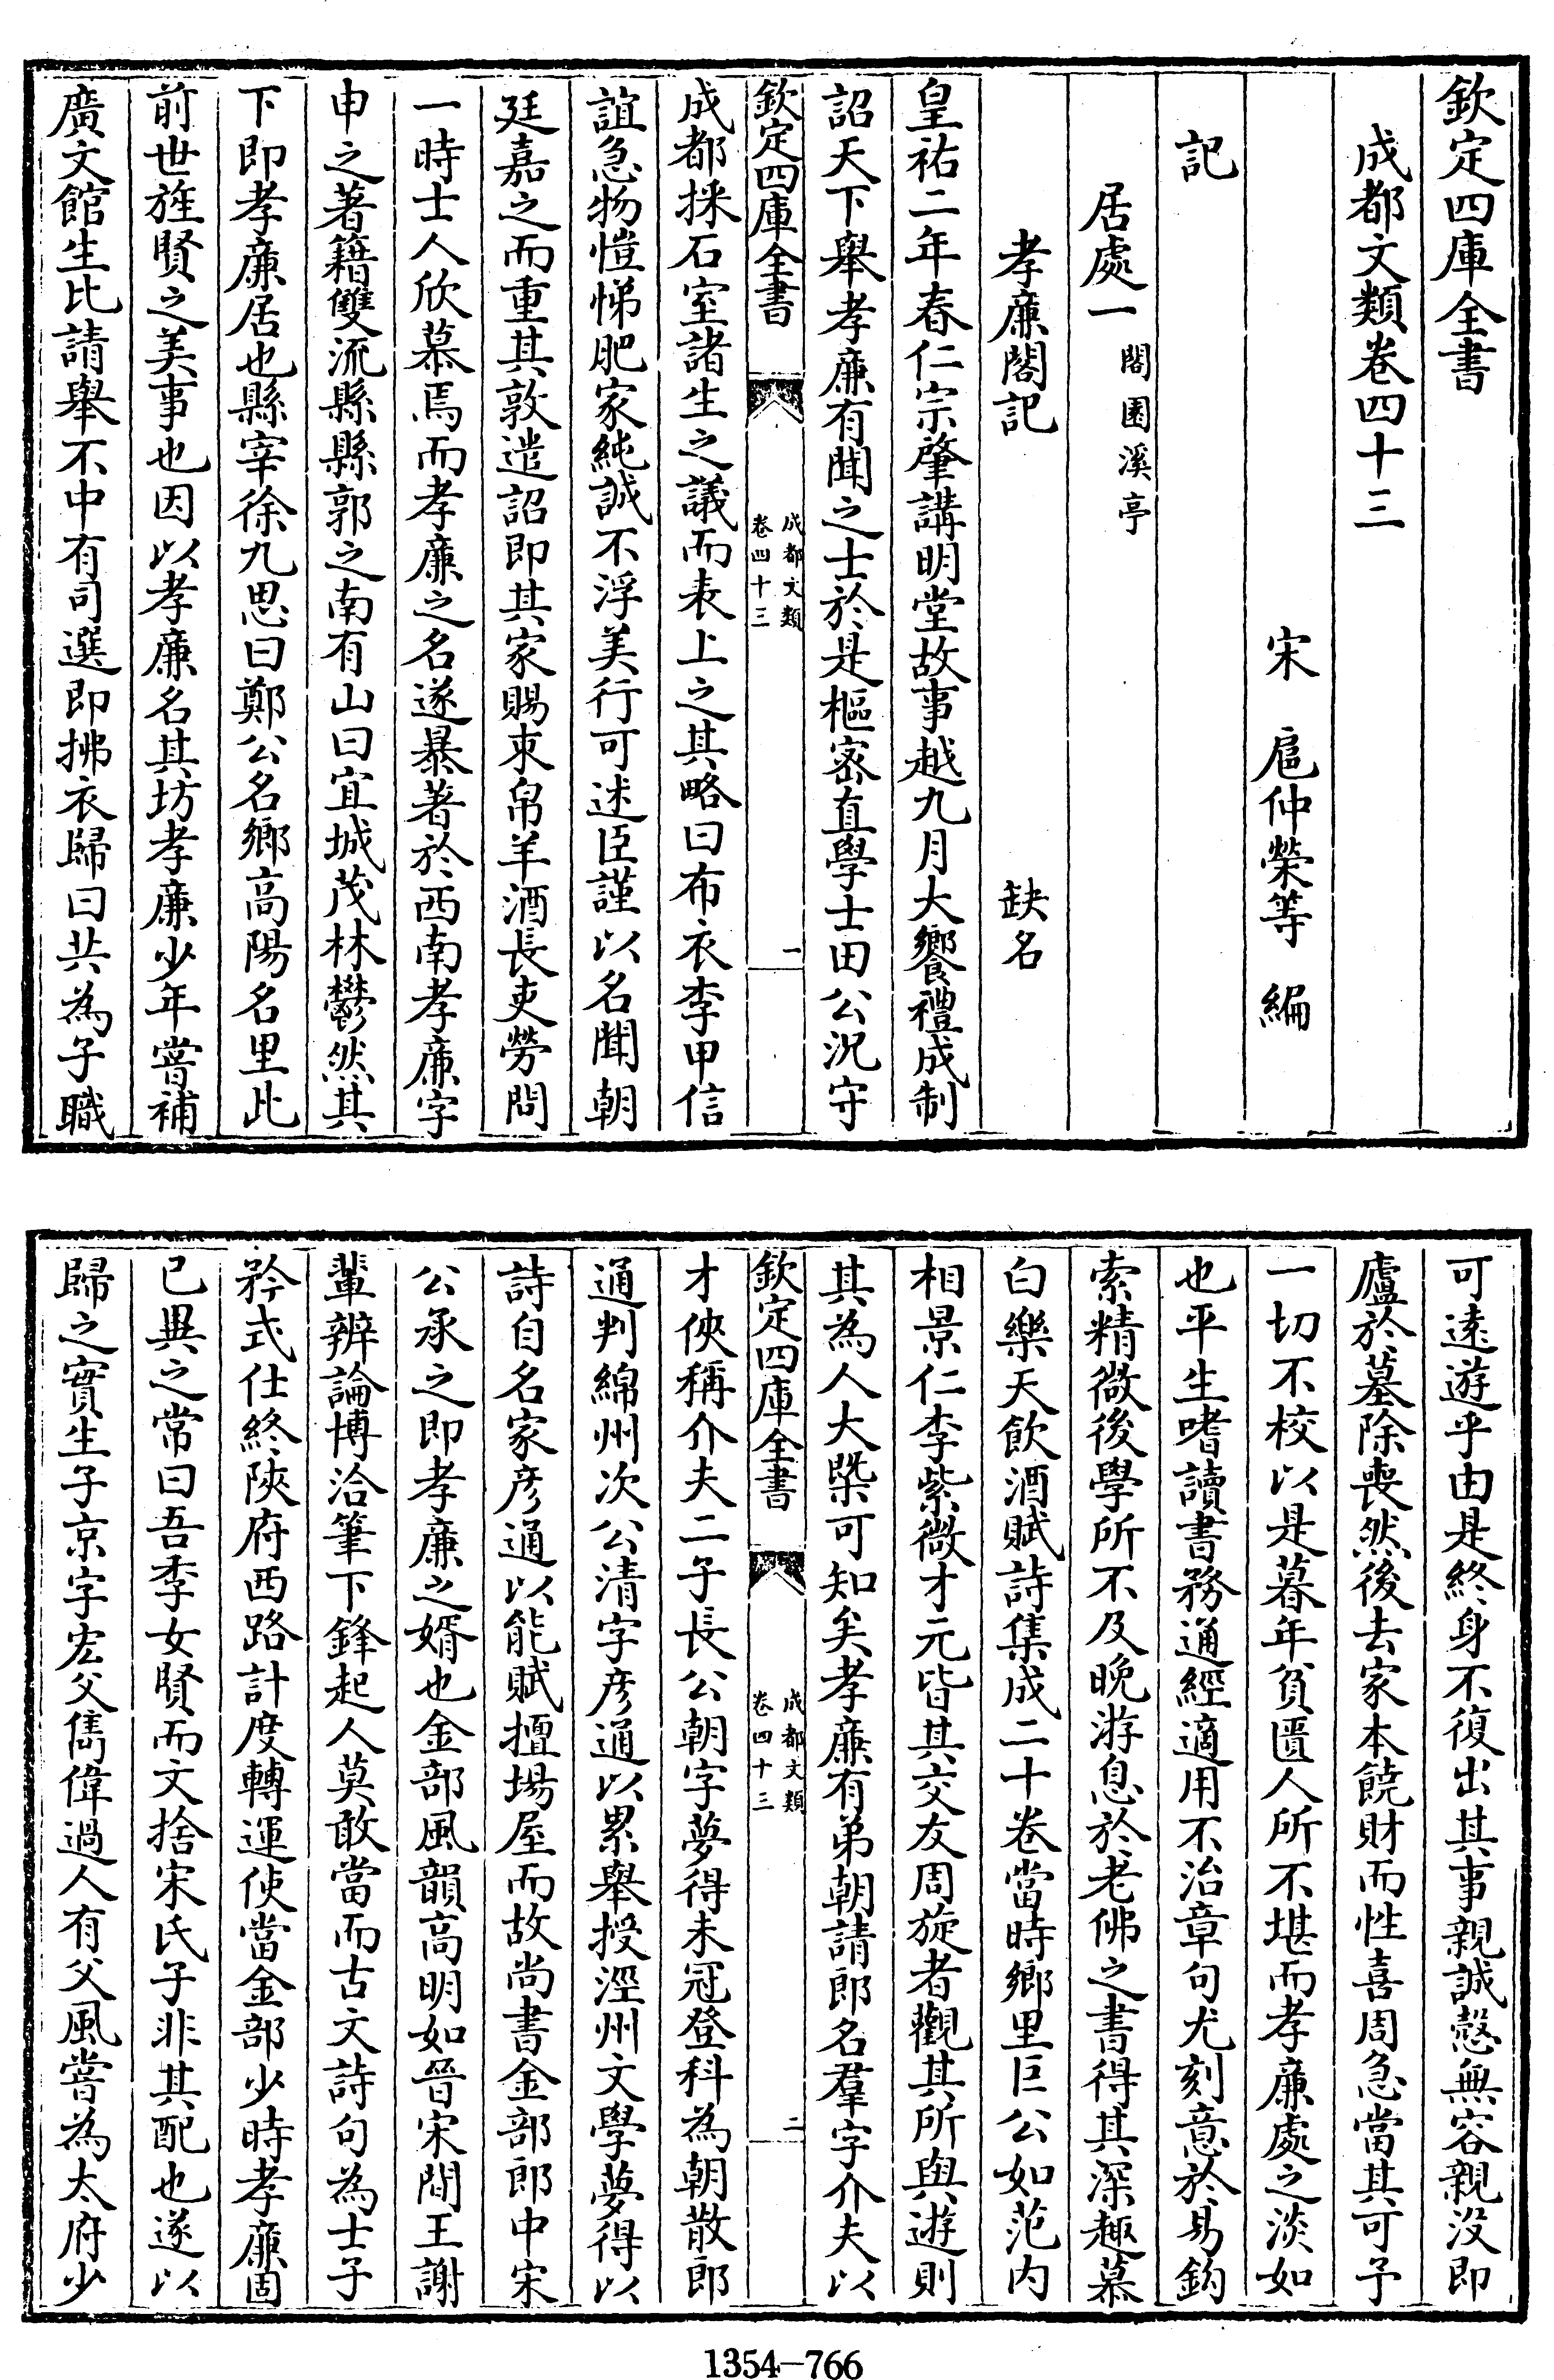 欽定四庫全書
成都文類卷四十三
宋　扈仲榮等　編
記
居處一閣園溪亭
孝廉閣記　缺名
皇祐二年春仁宗肇講明堂故事越九月大饗禮成制
詔天下舉孝廉有聞之士於是樞宻直學士田公況守
欽定四庫全書
成都文類
卷四十三
一
成都採石室諸生之議而表上之其略曰布衣李甲信
誼急物愷悌肥家純誠不浮美行可述臣謹以名聞朝
廷嘉之而重其敦遣詔即其家賜束帛羊酒長吏勞問
一時士人欣慕焉而孝廉之名遂暴著於西南孝廉字
申之著籍雙流縣縣郭之南有山曰宜城茂林鬱然其
下即孝廉居也縣宰徐九思曰鄭公名鄉高陽名里此
前世旌賢之美事也因以孝廉名其坊孝廉少年嘗補
廣文館生比請舉不中有司選即拂衣歸曰共為子職
可遠遊乎由是終身不復出其事親誠慤無容親沒即
廬於墓除喪然後去家本饒財而性喜周急當其可予
一切不校以是暮年貧匱人所不堪而孝廉處之淡如
也平生嗜讀書務通經適用不治章句尤刻意於易鈎
索精微後學所不及晚游息於老佛之書得其深趣慕
白樂天飲酒賦詩集成二十卷當時鄉里巨公如范内
相景仁李紫微才元皆其交友周旋者觀其所與遊則
其為人大槩可知矣孝廉有弟朝請郎名羣字介夫以
欽定四庫全書
成都文類
卷四十三
二
才俠稱介夫二子長公朝字夢得未冠登科為朝散郎
通判綿州次公清字彦通以累舉授涇州文學夢得以
詩自名家彦通以能賦擅場屋而故尚書金部郎中宋
公承之即孝廉之婿也金部風韻高明如晉宋間王謝
輩辨論博洽筆下鋒起人莫敢當而古文詩句為士子
矜式仕終陜府西路計度轉運使當金部少時孝廉固
已異之常曰吾季女賢而文捨宋氏子非其配也遂以
歸之實生子京字宏父儁偉過人有父風嘗為太府少
1354—766